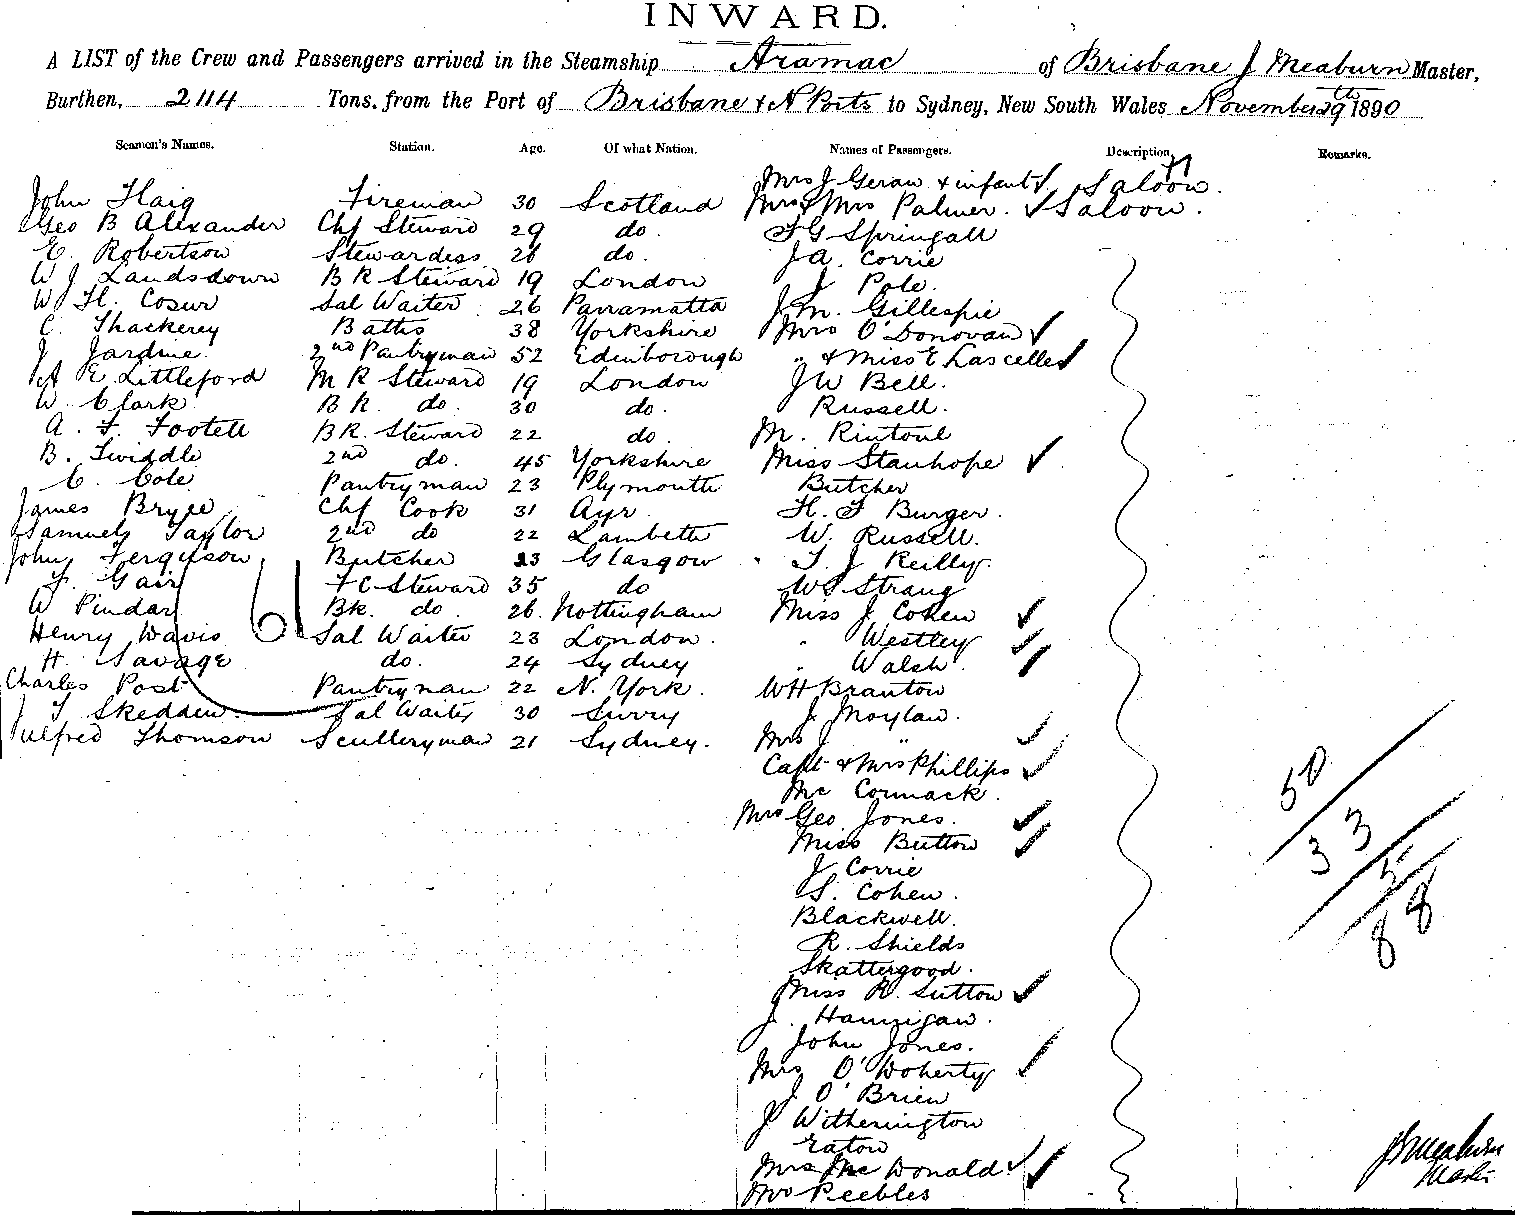 INWARD.
A LIST of the Crew and Passengers arrived in the Steamship Aramac of Brisbane J Meaburn Master,
Burthen, 2114 Tons, from the Port of Brisbane & N Ports to Sydney, New South Wales November 29th 1890
Seamen's Names. Station. Age. Of what Nation. Names of Passengers. Description Remarks.
Mrs J Geraw & infant Saloon.
John Haig Fireman 30 Scotland Mr & Mrs Palmer. Saloon.
Geo B Alexander Chf Steward 29 do. F G Springall
E. Robertson Stewardess 26 do. J A. Corrie
W J Landsdown B R Steward 19 London J Pole.
W H. Cosur Sal Waiter 26 Parramatta J M. Gillespie
C. Thackerey Baths 38 Yorkshire Mrs O'Donovan
J Jardine. 2nd Pantryman 52 Edinborough " & Miss E Lascelles
A E Littleford M R Steward 19 London J W Bell.
W Clark B R. do. 30 do. Russell.
A. F. Footett B R. Steward 22 do. M. Rintoul
B. Twiddle 2nd do. 45 Yorkshire Miss Stanhope
C. Cole. Pantryman 23 Plymouth Butcher
James Bryce Chf Cook 31 Ayr. H. F Burger.
Samuel Taylor 2nd do 22 Lambeth W. Russell.
John Ferguson Butcher 23 Glasgow T. J Reilly.
F. Gair F C Steward 35 do W S Strang
W Pindar BR. do. 26. Nottingham Miss J Cohen
Henry Davis Sal Waiter 23 London. " Westley
H. Savage do. 24 Sydney " Walsh.
Charles Post Pantryman 22 N. York. W H Branton
J T Skedden. Sal Waiter 30 Surry J Moylan.
Wilfred Thomson Sculleryman 21 Sydney. Mrs J "
61
Capt & Mrs Phillips
Mc Cormack.
Mrs Geo Jones.
Miss Button
J Corrie
S. Cohen.
Blackwell.
R. Shields
Skattergood.
Miss R. Sutton
J. Hannigan.
John Jones.
Mrs O'Doherty
J O'Brien
J Witherington
Eaton
Mrs Mc Donald
Mr Peebles
50
33
5
88
J Meaburn
Master